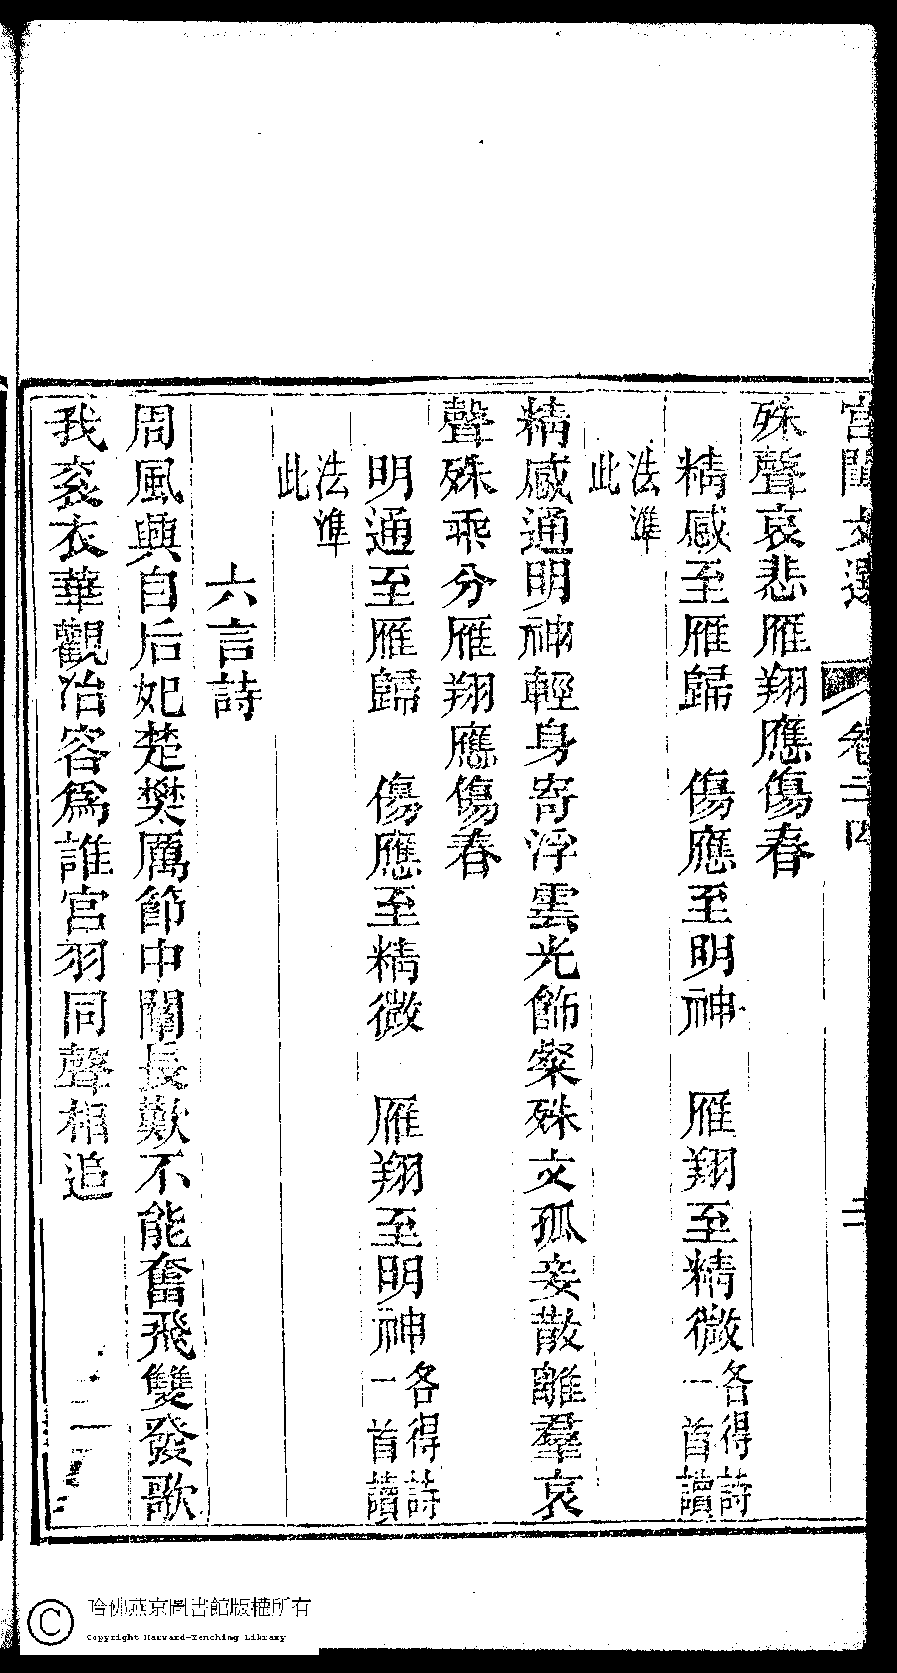 宮閨文選 卷二十四
殊聲哀悲雁翔應傷春
精感至雁歸 傷應至明神 雁翔至精微各得詩一首讀
法準此
精感通明神輕身寄浮雲光飾粲殊文孤妾散離羣哀
聲殊乖分雁翔應傷春
明通至雁歸 傷應至精微 雁翔至明神各得詩一首讀
法準此
六言詩
周風興自后妃楚樊厲節中闈長歎不能奮飛雙發歌
我袞衣華觀冶容為誰宮羽同聲相追
哈佛燕京圖書館版權所有
Copyright Harvard-Yenching Library